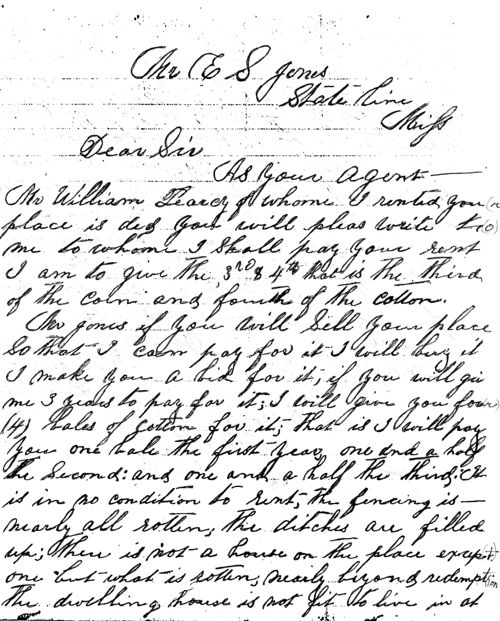 Mr E S Jones
State Line
Miss
Dear Sir
As your agent —
Mr William Pearcy of whome I rented you(r
place is ded you will pleas write t(o)
me to whome I shall pay your rent
I am to give the 3rd & 4th that is the third
of the corn and fourth of the cotton.
Mr Jones if you will sell your place
so that I can pay for it I will buy it
I make you a bid for it; if you will gi
me 3 years to pay for it; I will give you four
(4) bales of cotton for it; that is I will pay
you one bale the first year, one and a half
the second: and one and a half the third. It
is in no condition to rent; the fencing is —
nearly all rotten, the ditches are filled
up; there is not a house on the place except
one but what is rotten, nearly beyond redemption
the dwelling house is not fit to live in at